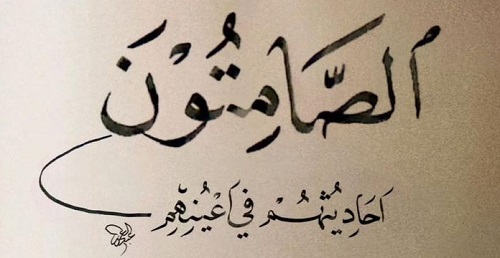 اَلصَّامِتُوْنَ
اَحَادِيْثُهُمْ فِي اَعْيُنِهِم